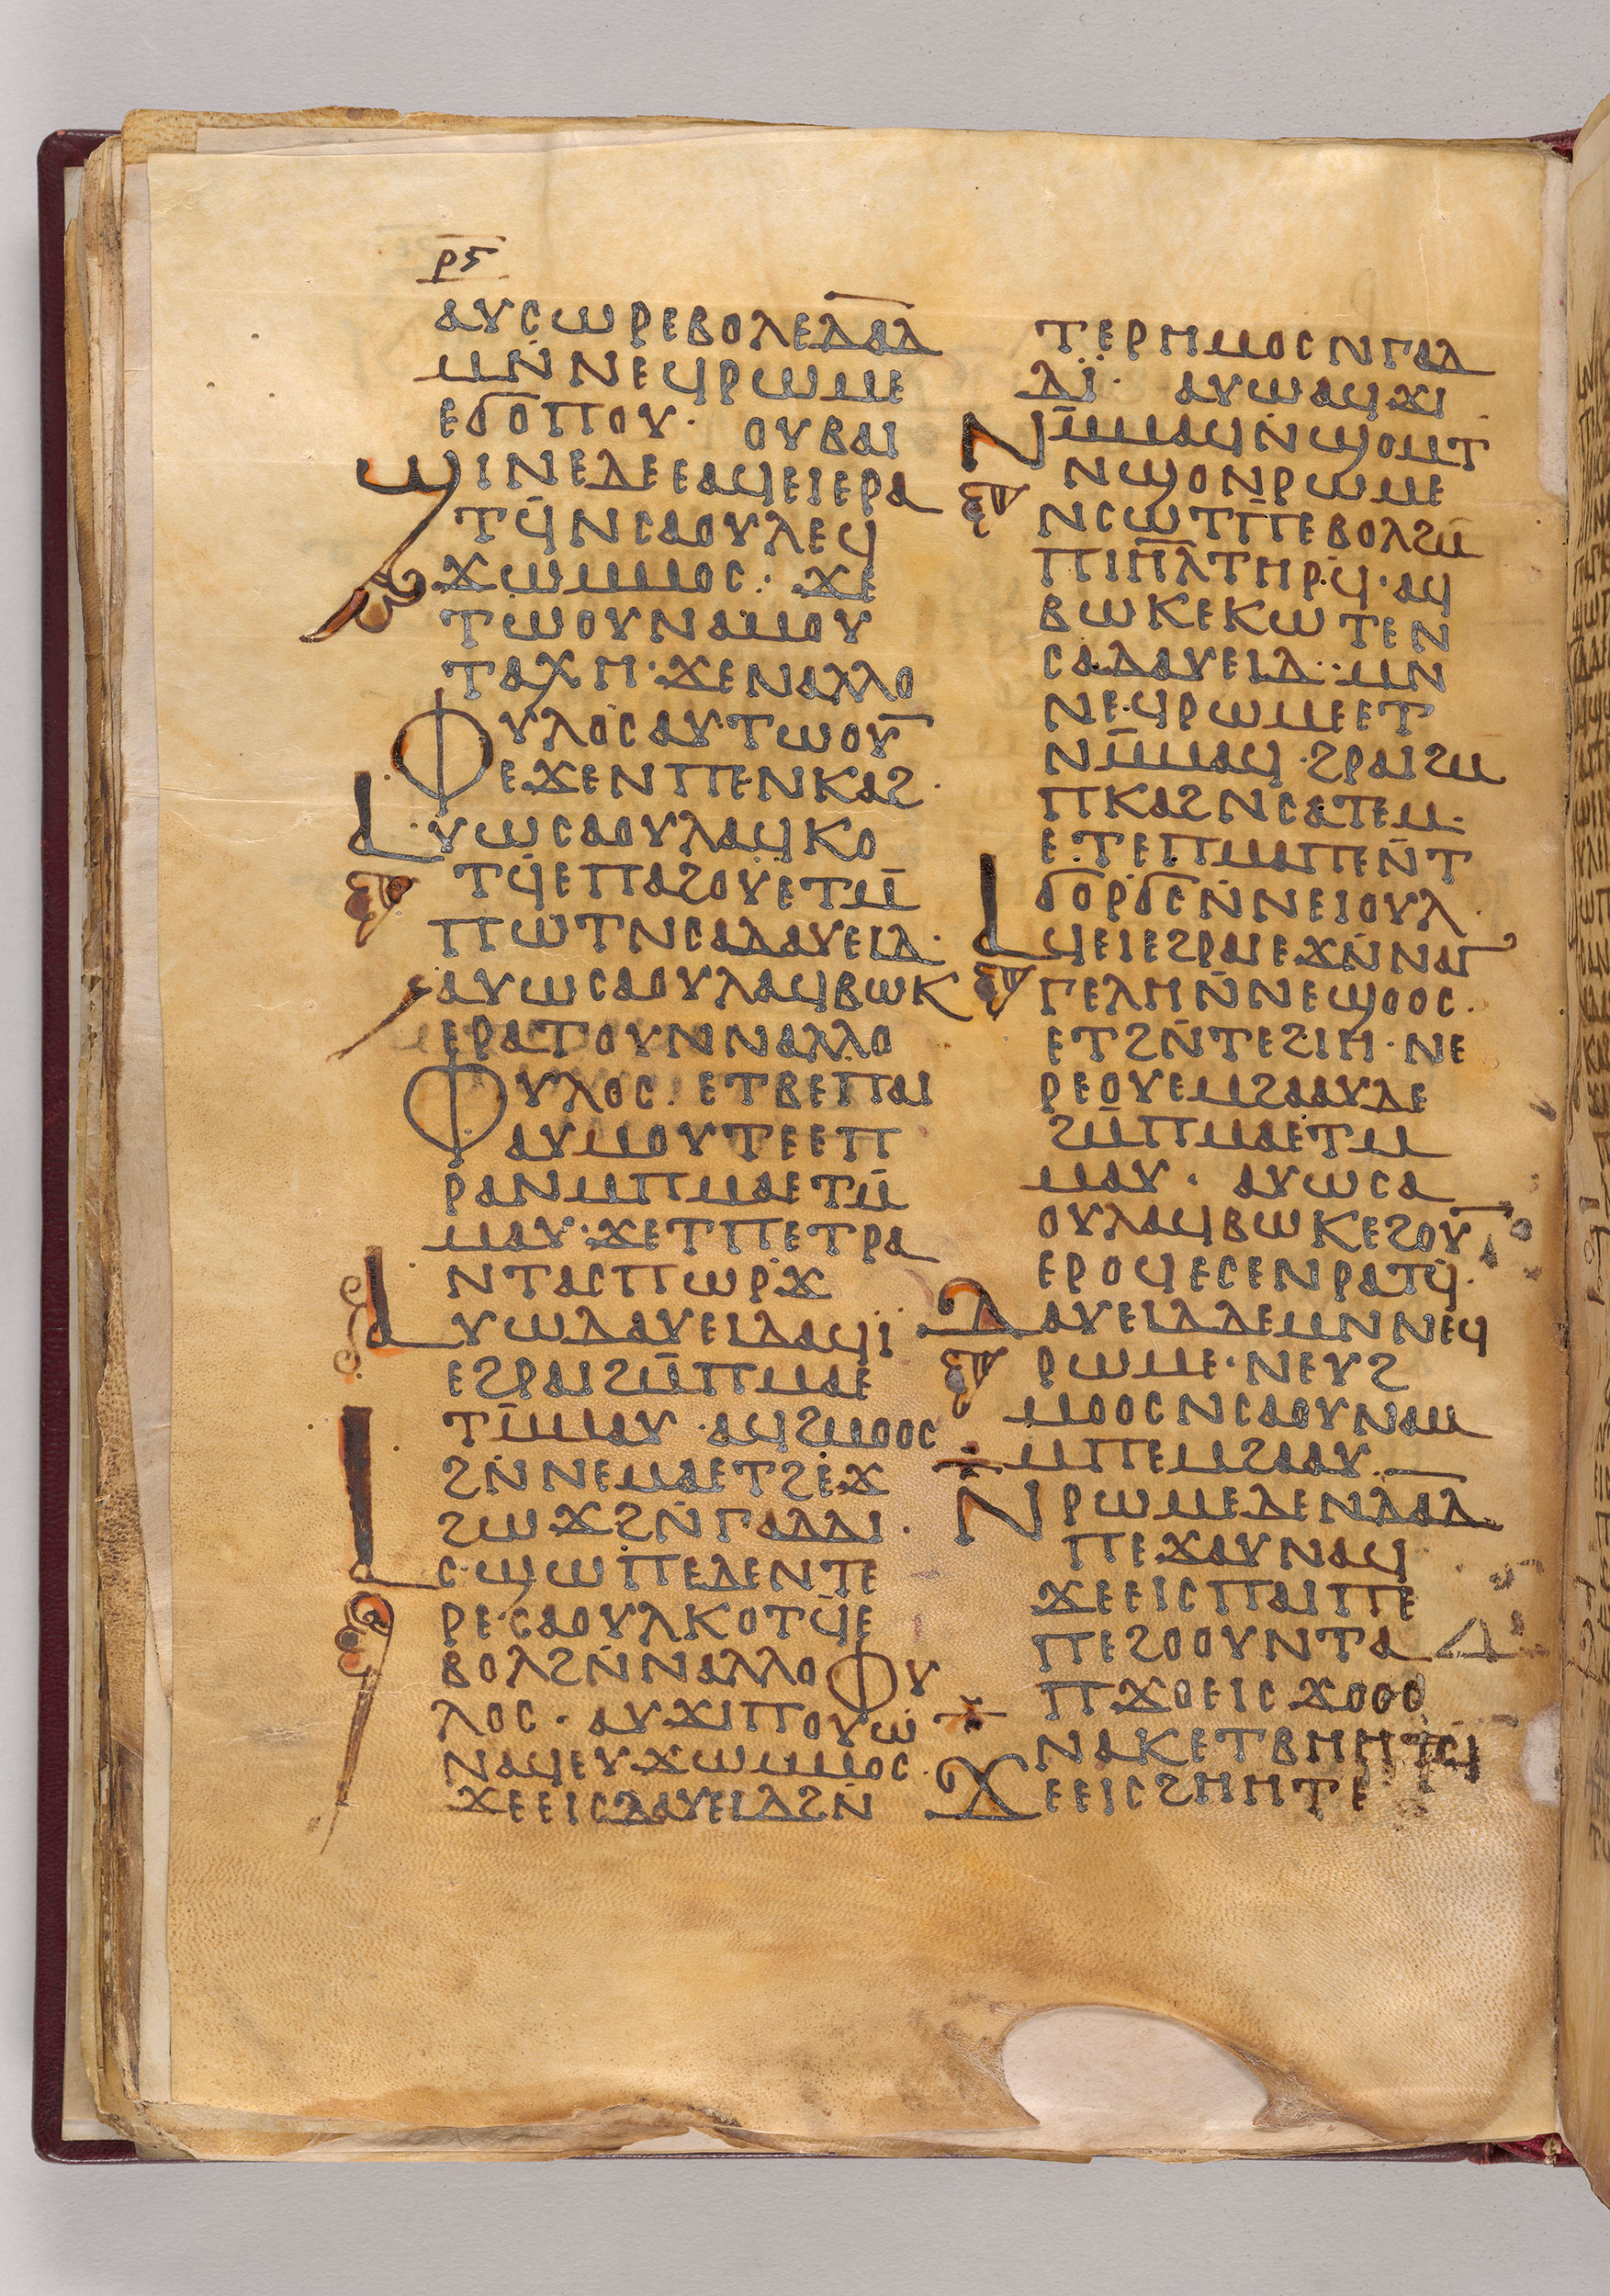 ⲣ̅ⲋ̅
ⲁⲩⲥⲱⲣⲉⲃⲟⲗⲉⲇ̅ⲁ̅ⲇ̅
ⲙⲛ̄ⲛⲉϥⲣⲱⲙⲉ
ⲉϭⲟⲡⲟⲩ· ⲟⲩⲃⲁⲓ
ϣⲓⲛⲉⲇⲉⲉⲁϥⲉⲓⲉⲣⲁ
ⲧϥ̄ⲛⲥⲁⲟⲩⲗⲉϥ
ϫⲱⲙⲙⲟⲥ· ϫⲉ
ⲧⲱⲟⲩⲛⲁⲙⲟⲩ
ⲧⲁⲭⲏ· ϫⲉⲛⲁⲗⲗⲟ
ⲫⲩⲗⲟⲥⲁⲩⲧⲱⲟⲩ̅
ⲉϫⲉⲛⲡⲉⲛⲕⲁϩ·
ⲁⲩⲱⲥⲁⲟⲩⲗⲁϥⲕⲟ
ⲧϥ̄ⲉⲡⲁϩⲟⲩⲉⲧⲙ̄
ⲡⲱⲧⲛⲥⲁⲇⲁⲩⲉⲓⲇ·
ⲁⲩⲱⲥⲁⲟⲩⲗⲁϥⲃⲱⲕ
ⲉⲣⲁⲧⲟⲩⲛⲛⲁⲗⲗⲟ
ⲫⲩⲗⲟⲥ· ⲉⲧⲃⲉⲡⲁⲓ
ⲁⲩⲙⲟⲩⲧⲉⲉⲡ
ⲣⲁⲛⲙⲡⲙⲁⲉⲧⲙ̄
ⲙⲁⲩ· ϫⲉⲧⲡⲉⲧⲣⲁ
ⲛⲧⲁⲥⲡⲱⲣϫ
ⲁⲩⲱⲇⲁⲩⲉⲓⲇⲁϥⲓ̈
ⲉϩⲣⲁⲓϩⲙ̄ⲡⲙⲁⲉ
ⲧⲙ̄ⲙⲁⲩ· ⲁϥϩⲙⲟⲟⲥ
ϩⲛ̄ⲛⲉⲙⲁⲉⲧϩⲉϫ
ϩⲱϫϩⲛ̄ⲅⲁⲇⲇⲓ·
ⲁⲥϣⲱⲡⲉⲇⲉⲛⲧⲉ
ⲣⲉⲥⲁⲟⲩⲗⲕⲟⲧϥ̄ⲉ
ⲃⲟⲗϩⲛ̄ⲛⲁⲗⲗⲟⲫⲩ
ⲗⲟⲥ· ⲁⲩϫⲓⲡⲟⲩⲱ
ⲛⲁϥⲉⲩϫⲱⲙⲙⲟⲥ·
ϫⲉⲉⲓⲥⲇⲁⲩⲉⲓⲇϩⲛ̄
ⲧⲉⲣⲏⲙⲟⲥⲛⲅⲁⲇ
ⲇⲓ̈· ⲁⲩⲱⲁϥϫⲓ
ⲛⲙ̄ⲙⲁϥⲛ̄ϣⲟⲙⲧ
ⲛϣⲟⲛⲣⲱⲙⲉ
ⲛⲥⲱⲧⲡ̄ⲉⲃⲟⲗϩⲙ̄
ⲡⲓⲏ̅ⲗ̅ⲧⲏⲣϥ· ⲁϥ
ⲃⲱⲕⲉⲕⲱⲧⲉⲛ
ⲥⲁⲇⲁⲩⲉⲓⲇ· ⲙⲛ
ⲛⲉϥⲣⲱⲙⲉⲉⲧ
ⲛⲙ̄ⲙⲁϥ· ϩⲣⲁⲓϩⲙ
ⲡⲕⲁϩⲛⲥⲁⲧⲉⲙ·
ⲉⲧⲉⲡⲙⲁⲡⲉⲛ̄ⲧ
ϭⲟⲣϭⲉⲛ̄ⲛⲉⲓⲟⲩⲗ·
ⲁϥⲉⲓⲉϩⲣⲁⲓⲉϫⲛ̄ⲛⲁⲅ
ⲅⲉⲗⲏⲛ̄ⲛⲉϣⲟⲟⲥ·
ⲉⲧϩⲛ̄ⲧⲉϩⲓⲏ· ⲛⲉ
ⲣⲉⲟⲩⲉⲙϩⲁⲁⲩⲇⲉ
ϩⲙ̄ⲡⲙⲁⲉⲧⲙ
ⲙⲁⲩ· ⲁⲩⲱⲥⲁ
ⲟⲩⲗⲁϥⲃⲱⲕⲉϩⲟⲩ̅
ⲉⲣⲟϥⲉⲥⲉⲛⲣⲁⲧϥ̄·
ⲇⲁⲩⲉⲓⲇⲇⲉⲙⲛⲛⲉϥ
ⲣⲱⲙⲉ· ⲛⲉⲩϩ
ⲙⲟⲟⲥⲛⲥⲁⲟⲩⲛⲁⲙ
ⲙⲡⲉⲙϩⲁⲁⲩ·
ⲛⲣⲱⲙⲉⲇⲉⲛⲇ̅ⲁ̅ⲇ̅
ⲡⲉϫⲁⲩⲛⲁϥ
ϫⲉⲉⲓⲥⲡⲁⲓⲡⲉ
ⲡⲉϩⲟⲟⲩⲛⲧⲁ
ⲡϫⲟⲉⲓⲥϫⲟⲟⲥ
ⲛⲁⲕⲉⲧⲃⲏⲏⲧϥ
ϫⲉⲉⲓⲥϩⲏⲏⲧⲉ